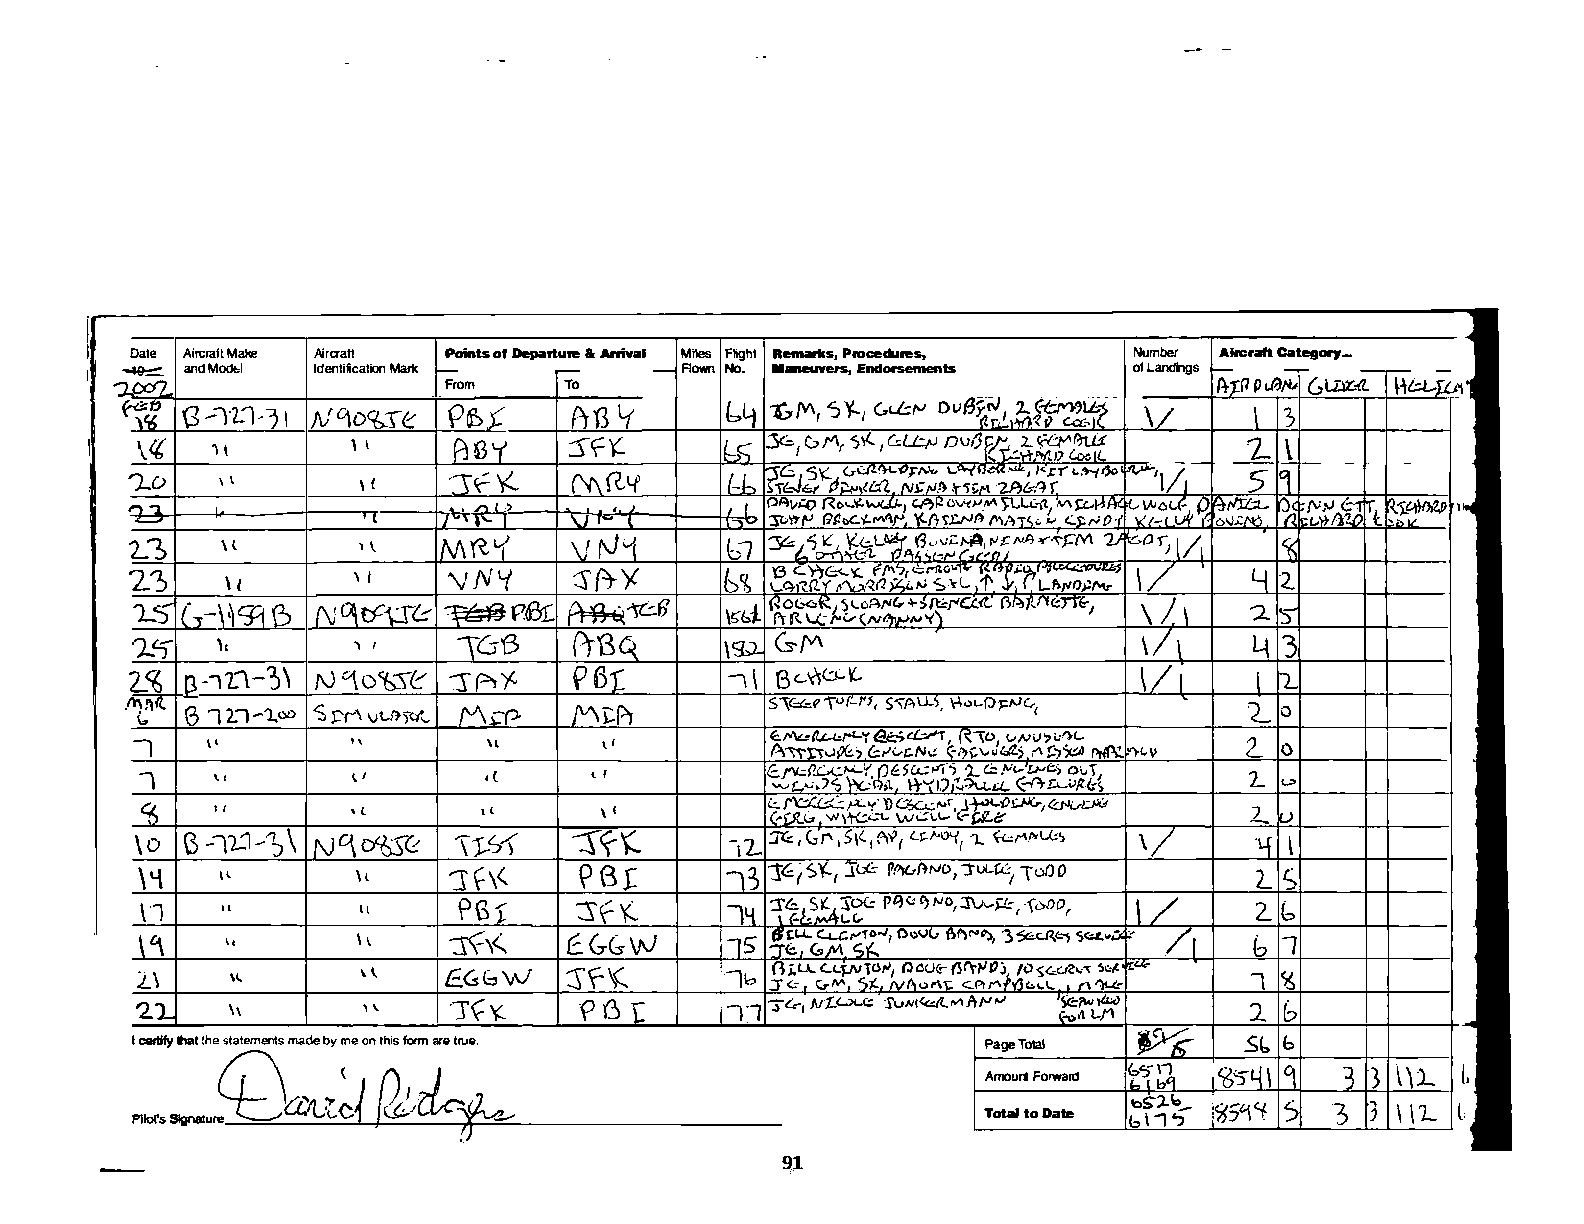 Date Aircraft Make Aircraft Points of Departure & Arrival Miles Flight Remarks, Procedures, Number Aircraft Category
19 and Model Identification Mark Flown No. Maneuvers, Endorsements of Landings
2002 From To AIRPLANE GLIDER HELICM
FEB 18 B-727-31 N908JE PBI ABY 64 JGM, SK, GLEN DUBIN, 2 FEMALES RICHARD COOK 1/ 1 3
18 " " ABY JFK 65 JE, GM, SK, GLEN DUBIN, 2 FEMALES RICHARD COOK 2 1
20 " " JFK MRY 66 JE, SK, GERALDINE LAYBORNE, KIT LAYBOURNE, STEVEN PINKER, NINA + TIM ZAGAT, 1/1 5 9
23 " " MRY VNY 66 DAVID ROCKWELL, CAROLYN MILLER, MICHAEL WOLF, DANIEL DENNETT, RICHARD
JOHN BROCKMAN, KATINA MATSON, CINDY KELLY BOVINO, RICHARD COOK
23 " " MRY VNY 67 JE, SK, KELLY BOVINA, NINA + TIM ZAGAT, 6 OTHER PASSENGERS 1/1 8
23 " " VNY JAX 68 B CHECK FMS, ENROUTE RADIO PROCEDURES LARRY MORRISON S+L, ↑ ↓, 1 LANDING 1/ 4 2
25 G-1159B N909JE TEB PBI ABQ TEB 1561 ROGER, SLOANE + SPENCER BARNETTE, ARLENE (NANNY) 1/1 2 5
25 " " TEB ABQ 182 GM 1/1 4 3
28 B-727-31 N908JE JAX PBI 71 B CHECK 1/1 1 2
MAR 6 B 727-200 SIMULATOR MIA MIA STEEP TURNS, STALLS, HOLDING, 2 0
7 " " " " EMERGENCY DESCENT, RTO, UNUSUAL ATTITUDES, ENGINE FAILURES, MISSED APPROACH 2 0
7 " " " " EMERGENCY DESCENTS 2 ENGINES OUT, WINDSHEAR, HYDRAULIC FAILURES 2 0
8 " " " " EMERGENCY DESCENT, HOLDING, ENGINE FIRE, WHEEL WELL FIRE 2 0
10 B-727-31 N908JE TIST JFK 72 JE, GM, SK, AP, CINDY, 2 FEMALES 1/ 4 1
14 " " JFK PBI 73 JE, SK, JOE PAGANO, JULIE, TODD 2 5
17 " " PBI JFK 74 JE, SK, JOE PAGANO, JULIE, TODD, 1 FEMALE 1/ 2 6
19 " " JFK EGGW 75 BILL CLINTON, DOUG BAND, 3 SECRET SERVICE JE, GM, SK /1 6 7
21 " " EGGW JFK 76 BILL CLINTON, DOUG BAND, 10 SECRET SERVICE JE, GM, SK, NAOMI CAMPBELL, 1 MALE 7 8
22 " " JFK PBI 77 JE, NICOLE JUNKERMANN FOR LM 2 6
I certify that the statements made by me on this form are true. Page Total 9/6 56 6
Amount Forward 6517 6169 18541 9 3 3 112 6
Pilot's Signature David Rodgers Total to Date 6526 6175 18598 5 3 3 112 6
91